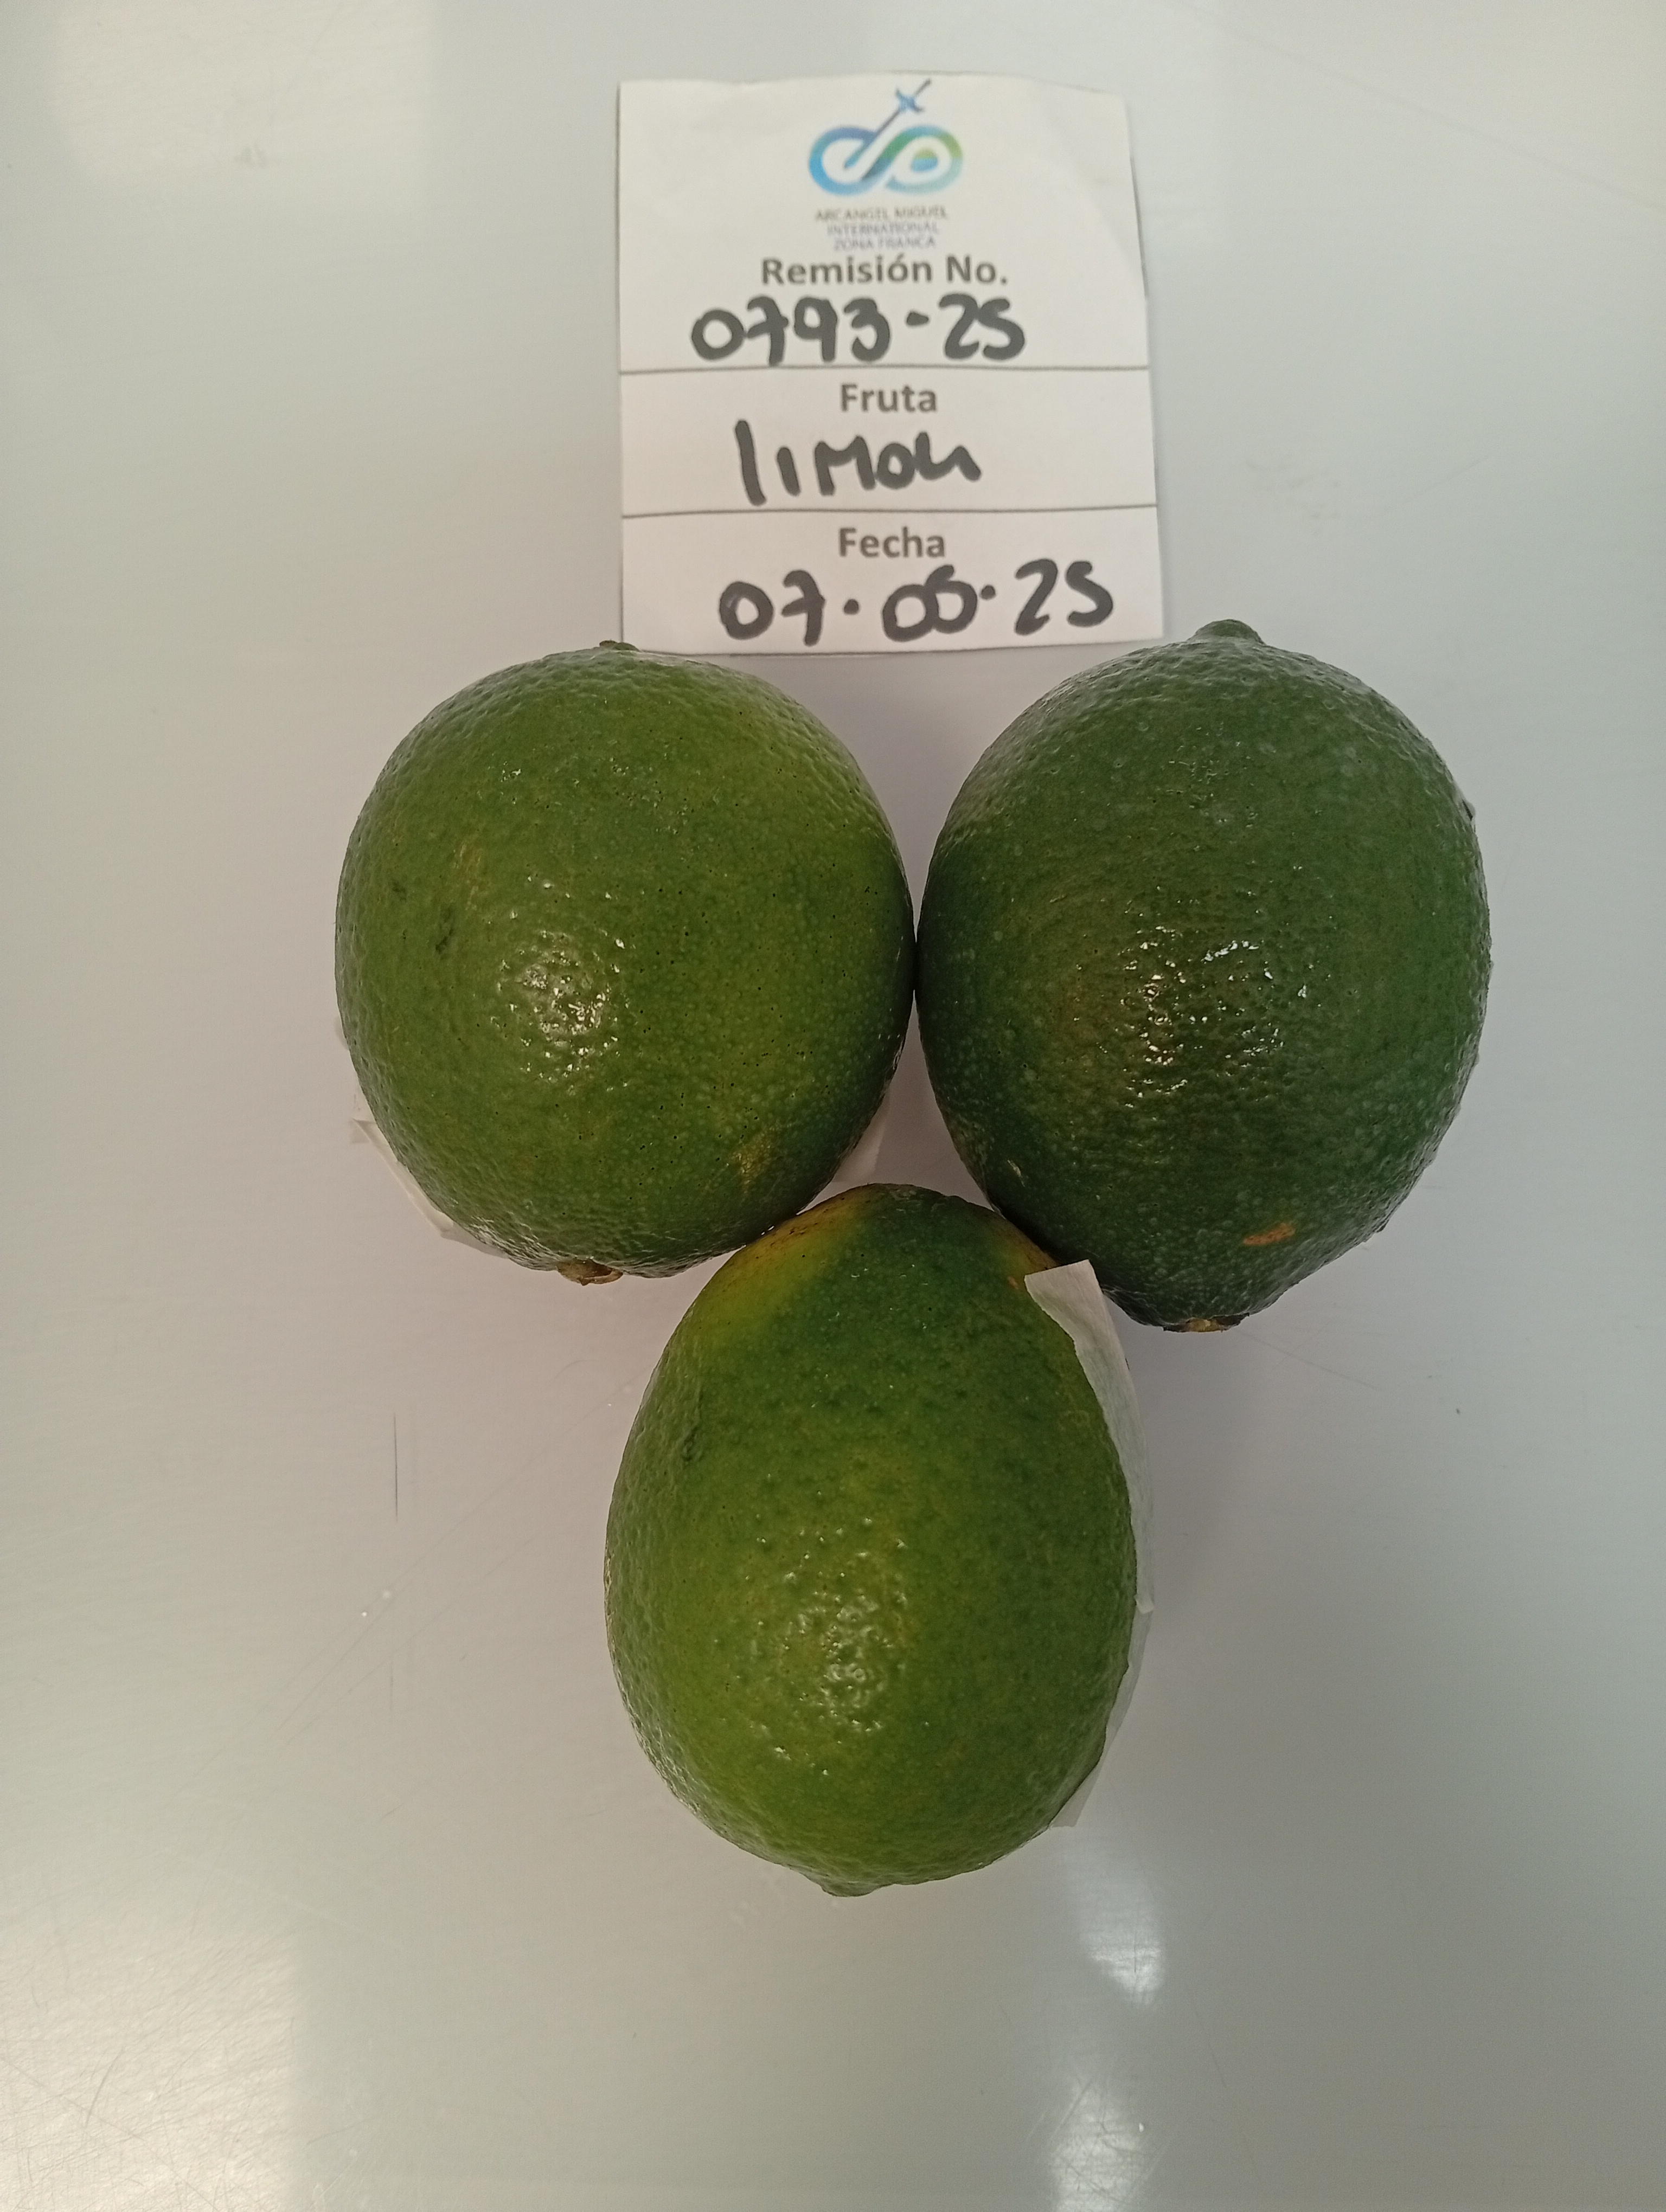 ARCANGEL MIGUEL
INTERNATIONAL
ZONA FRANCA
Remisión No.
0793-25
Fruta
limon
Fecha
07.05.25